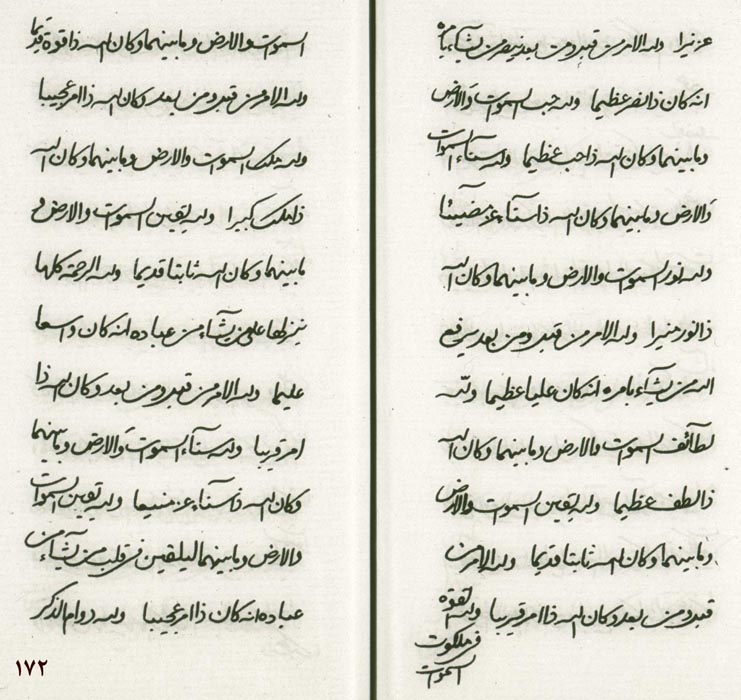 عزيزا ولله الامر من قبل ومن بعد ينصر من يشآء بامره
انه كان ذا نصر عظيما ولله حب السموات والارض
وما بينهما وكان الله ذا حب عظيما ولله سنآء السموات
والارض وما بينهما وكان الله ذا سنآء عز مضيئا
ولله نور السموات والارض وما بينهما وكان الله
ذا نور منيرا ولله الامر من قبل ومن بعد يرفع
الله من يشآء بامره انه كان عليا عظيما ولله
لطآئف السموات والارض وما بينهما وكان الله
ذا لطف عظيما ولله يقين السموات والارض
وما بينهما وكان الله ثابتا قديما ولله الامر من
قبل ومن بعد وكان الله ذا امر قريبا ولله القوه
فى ملكوت
السموات
السموات والارض وما بينهما وكان الله ذا قوة قديما
ولله الامر من قبل ومن بعد وكان الله ذا امر عجيبا
ولله ملك السموات والارض وما بينهما وكان الله
ذا ملك كبيرا ولله يقين السموات والارض و
ما بينهما وكان الله ثابتا قديما ولله الرحمة كلها
ينزلها على من يشآء من عباده انه كان واسعا
عليما ولله الامر من قبل ومن بعد وكان الله ذا
امر قريبا ولله سنآء السموات والارض وما بينهما
وكان الله ذا سنآء عز منيعا ولله يقين السموات
والارض وما بينهما ليلقين فى قلب من يشآء من
عباده انه كان ذا امر عجيبا ولله دوام الذكر
١٧٢